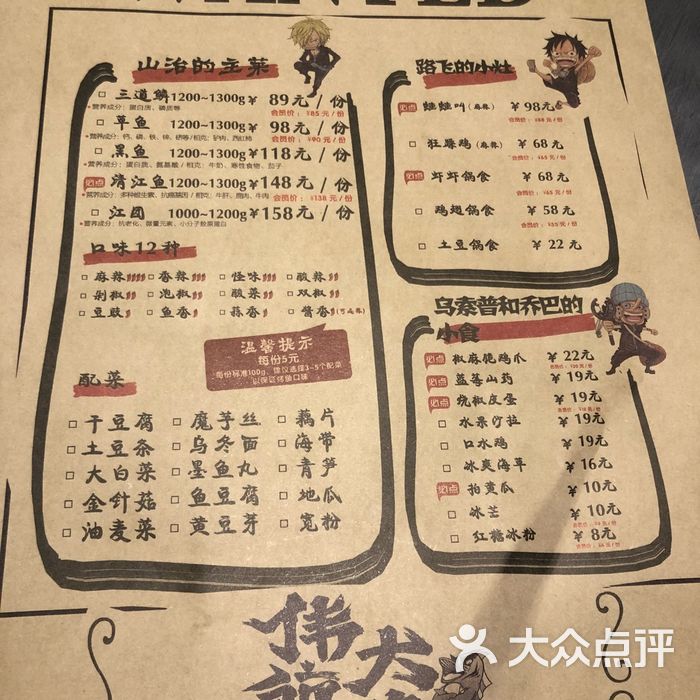 WANTED
山治的主菜
三道鳞 1200~1300g ¥ 89 元 / 份
*营养成分：蛋白质、磷质等 会员价：¥85 元 / 份
草鱼 1200~1300g ¥ 98 元 / 份
*营养成分：钙、磷、铁、锌、硒等 / 相克：驴肉、西红柿 会员价：¥90 元 / 份
黑鱼 1200~1300g ¥ 118 元 / 份
*营养成分：蛋白质、氨基酸 / 相克：牛奶、寒性食物、茄子
必点 清江鱼 1200~1300g ¥ 148 元 / 份
*营养成分：多种维生素、抗癌基因 / 相克：牛肝、鹿肉、牛肉 会员价：¥138 元 / 份
江团 1000~1200g ¥ 158 元 / 份
*营养成分：抗老化、微量元素、小分子胶原蛋白
口味12种
麻辣 香辣 怪味 酸辣
剁椒 泡椒 酸菜 双椒
豆豉 鱼香 蒜香 酱香(可减辣)
温馨提示
每份5元
每份标准100g，建议选择3~5个配菜
以保证烤鱼口味
配菜
干豆腐 魔芋丝 藕片
土豆条 乌冬面 海带
大白菜 墨鱼丸 青笋
金针菇 鱼豆腐 地瓜
油麦菜 黄豆芽 宽粉
路飞的小灶
必点 蛙蛙叫 (麻辣) ¥ 98元
会员价：¥88 元 / 份
狂躁鸡 (麻辣) ¥ 68 元
会员价：¥65 元 / 份
必点 虾虾锅食 ¥ 68 元
会员价：¥65 元 / 份
鸡翅锅食 ¥ 58 元
会员价：¥55 元 / 份
土豆锅食 ¥ 22 元
乌索普和乔巴的
小食
必点 椒麻脱鸡爪 ¥ 22元
会员价：¥20 元 / 份
必点 蓝莓山药 ¥ 19元
必点 烧椒皮蛋 ¥ 19元
水果沙拉 ¥ 19元
口水鸡 ¥ 19元
冰爽海草 ¥ 16元
必点 拍黄瓜 ¥ 10元
冰芒 ¥ 10元
红糖冰粉 ¥ 8元
伟大
大众点评